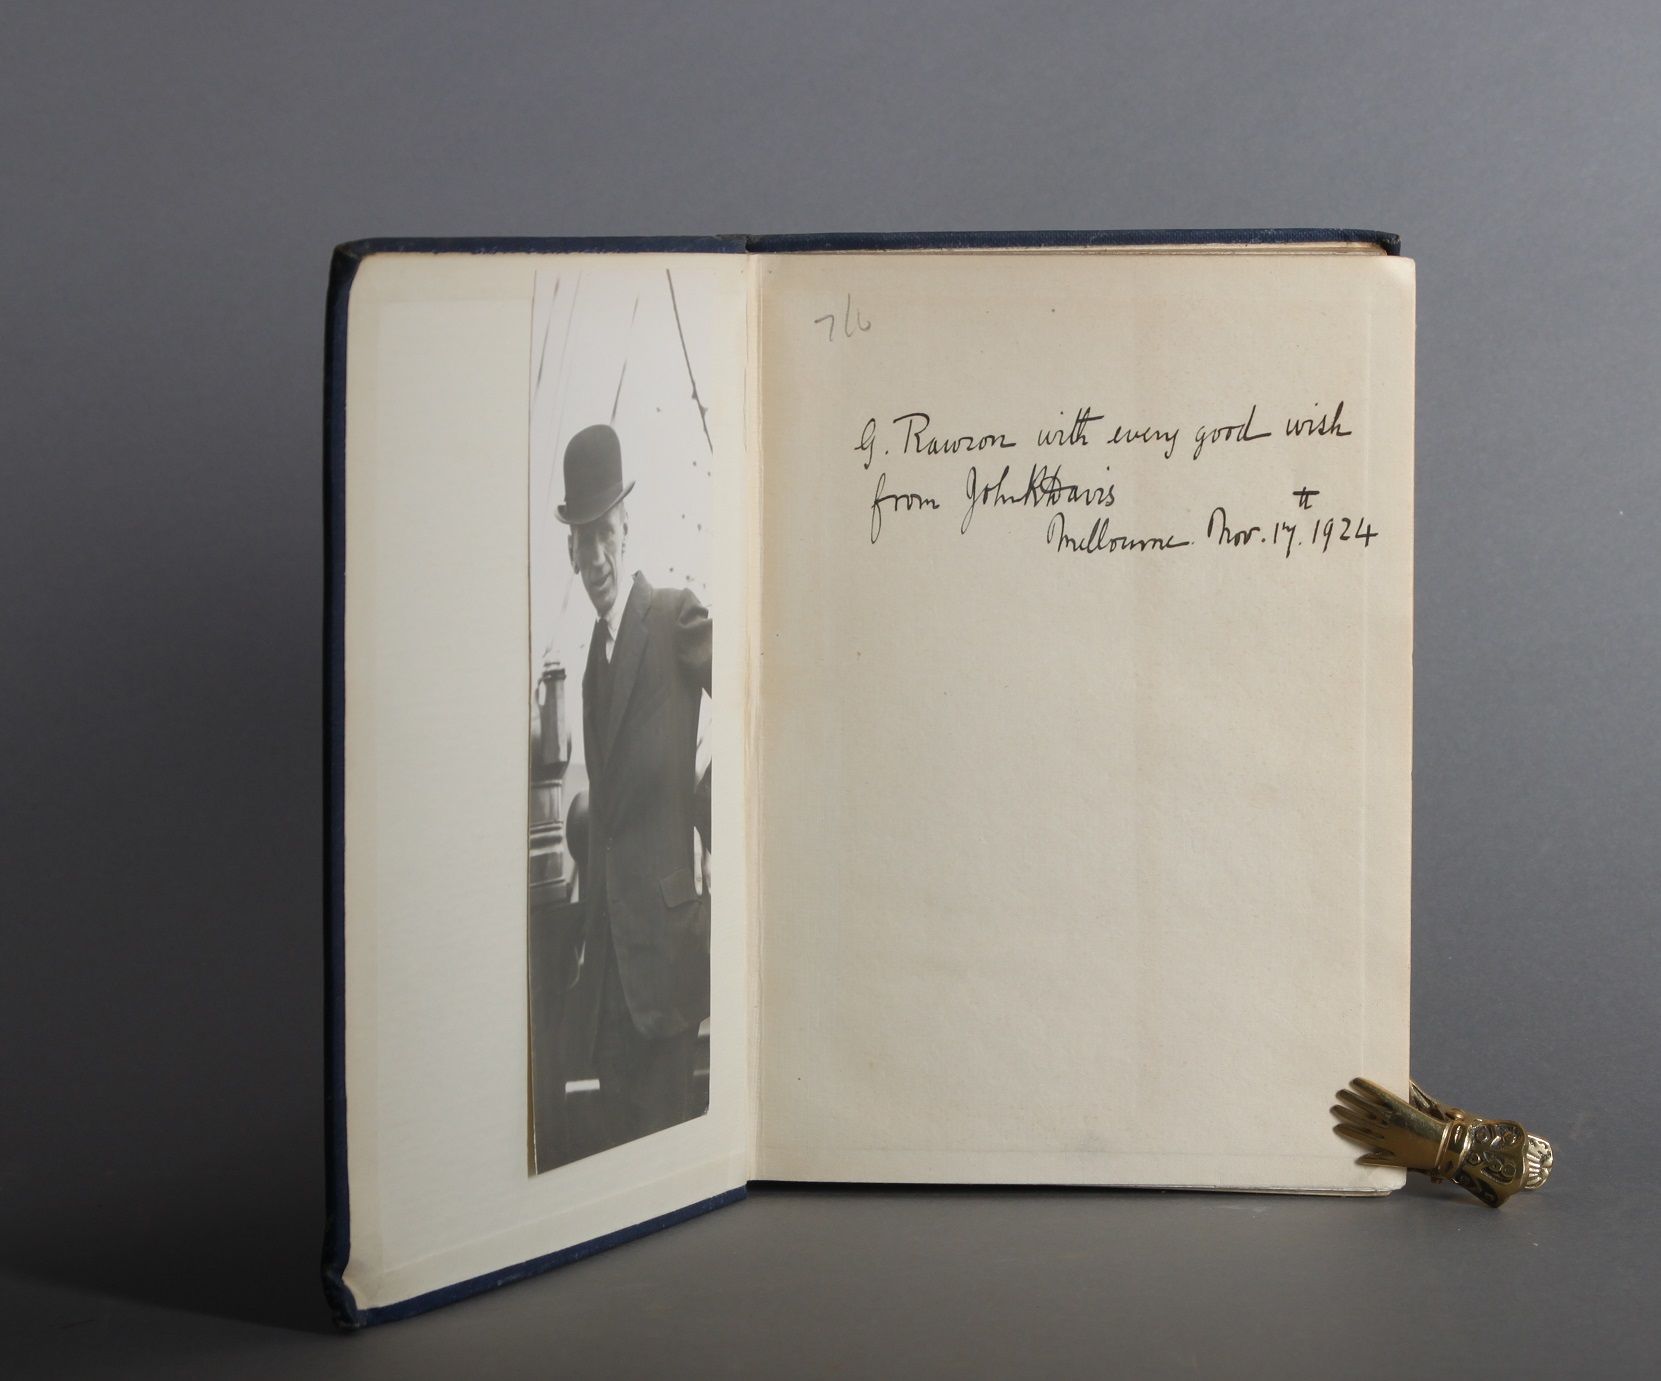 7/6
G. Rawson with every good wish
from John K Davis
Melbourne. Nov. 17th. 1924